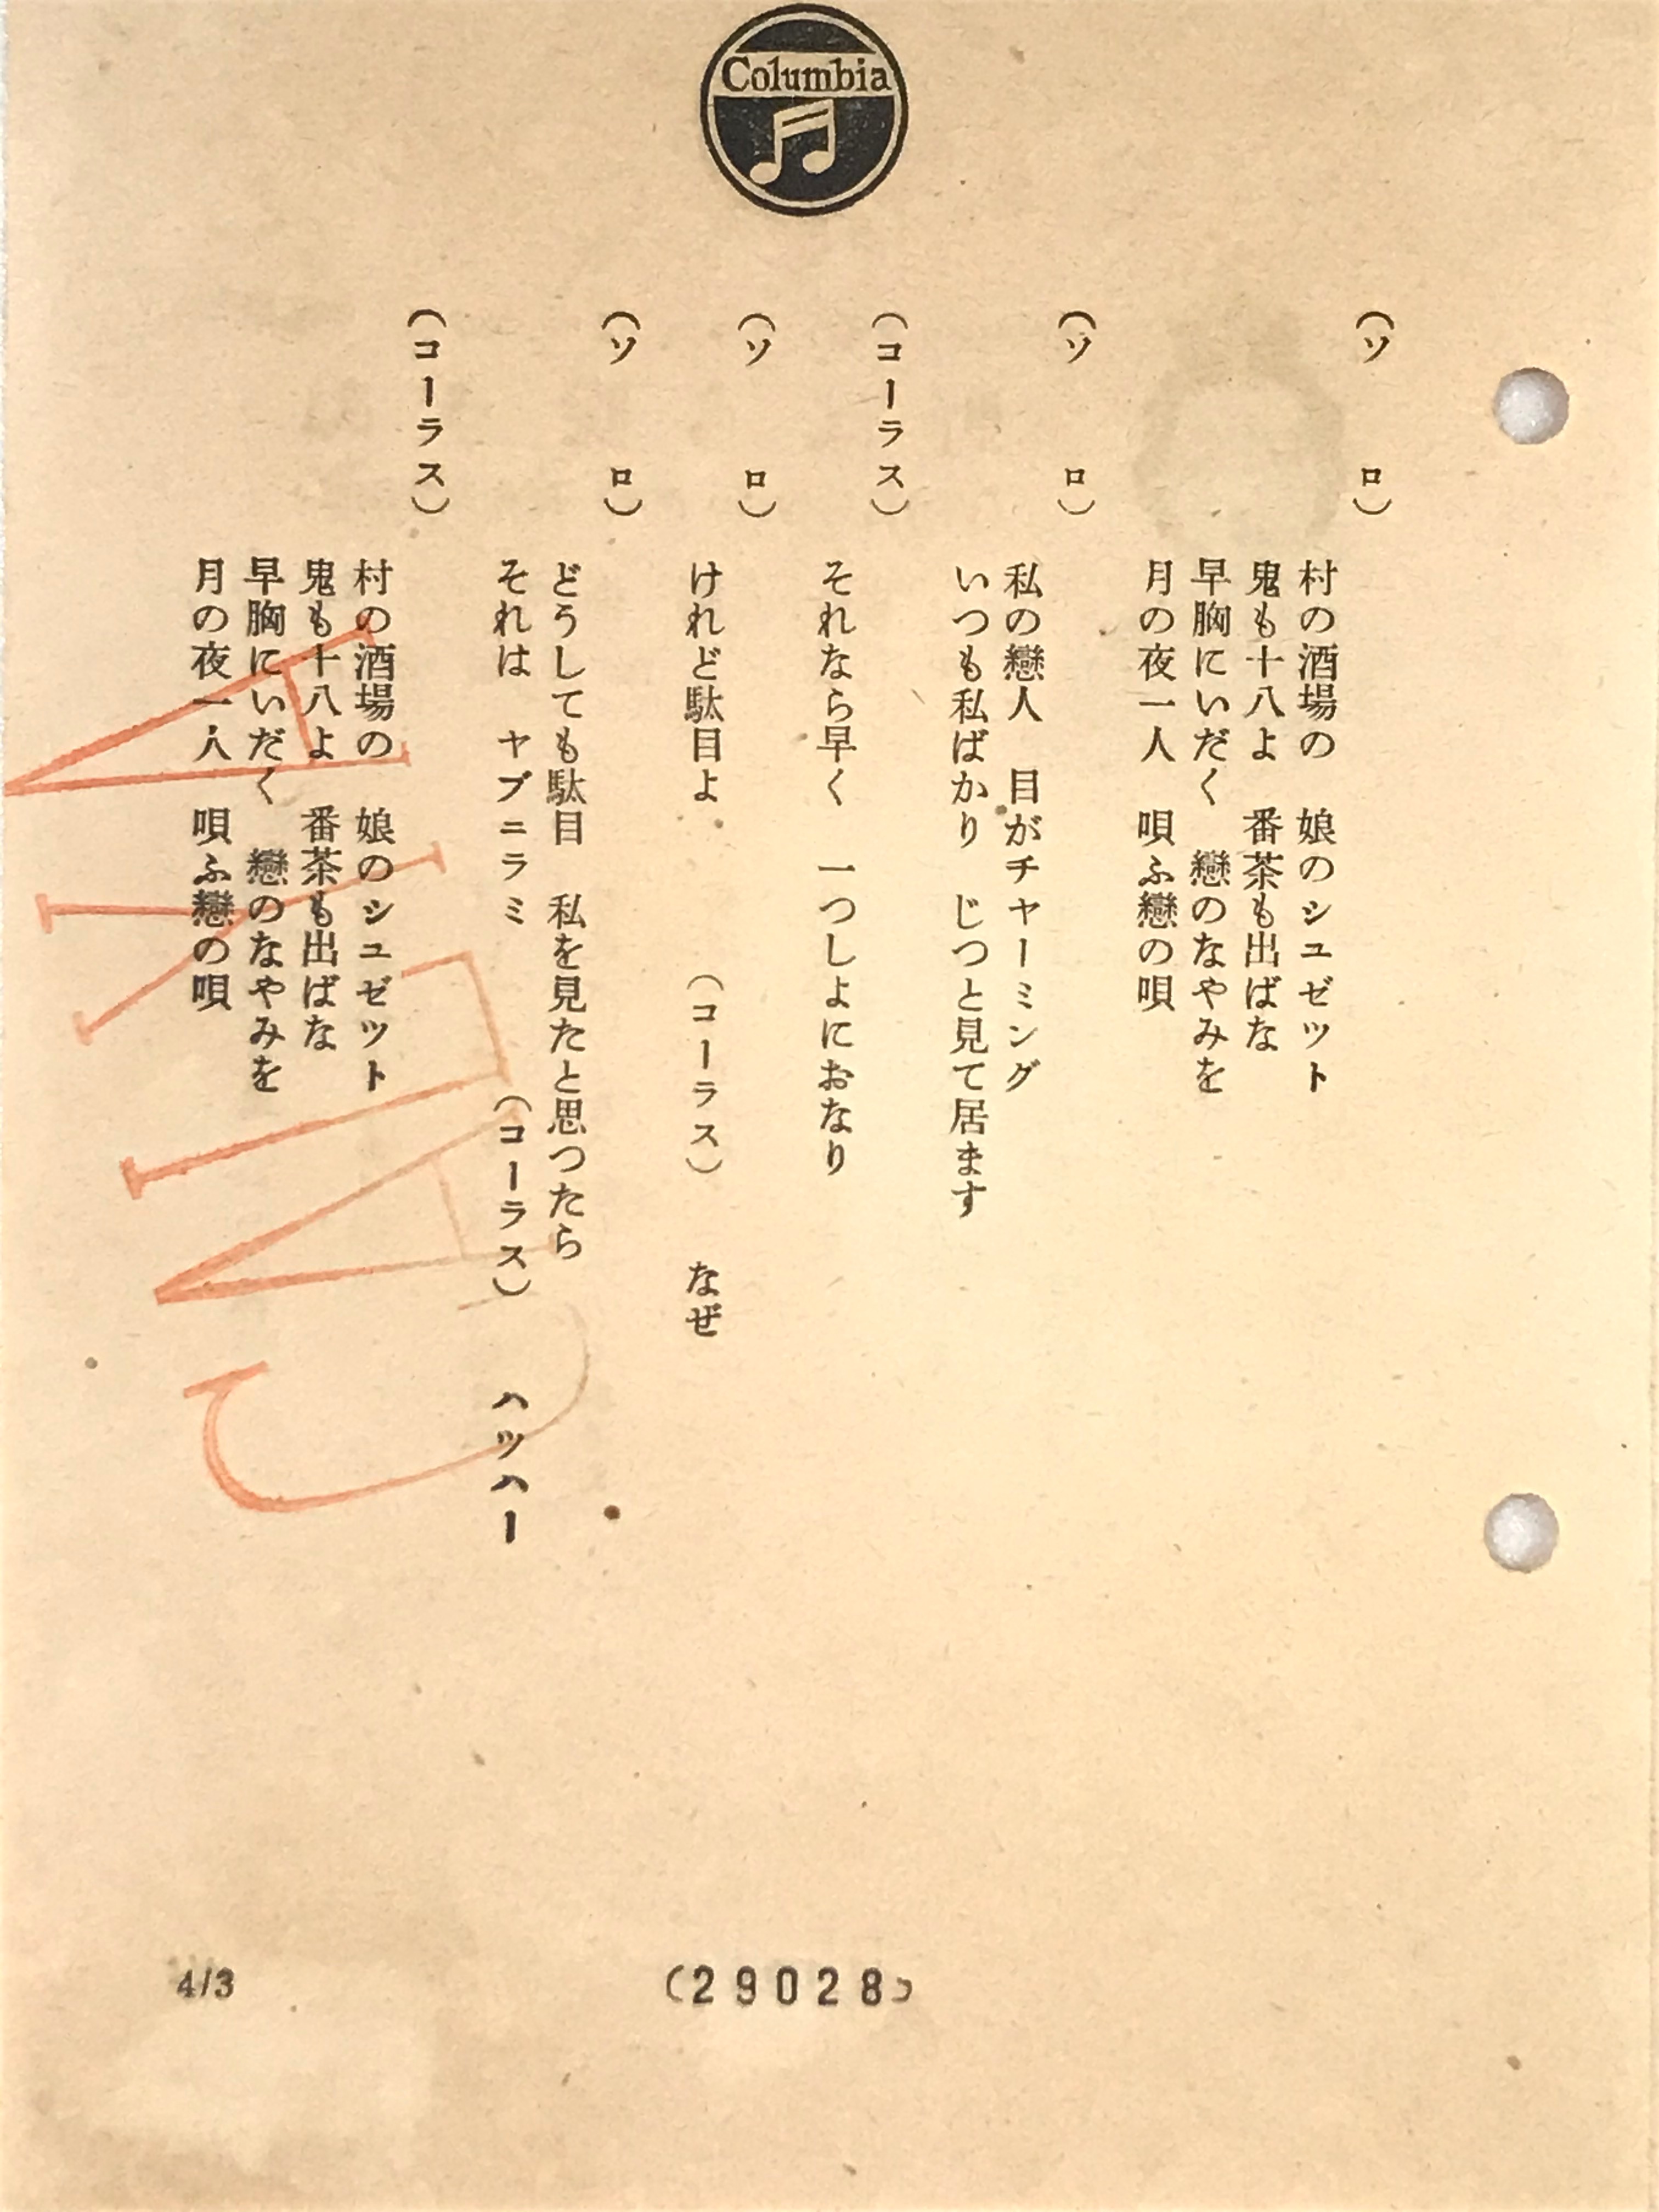 Columbia
(ソロ)
村の酒場の 娘のシユゼツト
鬼も十八よ 番茶も出ばな
早胸にいだく 戀のなやみを
月の夜一人 唄ふ戀の唄
(ソロ)
私の戀人 目がチヤーミング
いつも私ばかり じつと見て居ます
(コーラス)
それなら早く 一つしよにおなり
(ソロ)
けれど駄目よ (コーラス) なぜ
(ソロ)
どうしても駄目 私を見たと思つたら
それは ヤブニラミ (コーラス) ハツハー
(コーラス)
村の酒場の 娘のシユゼツト
鬼も十八よ 番茶も出ばな
早胸にいだく 戀のなやみを
月の夜一人 唄ふ戀の唄
4/3
(29028)